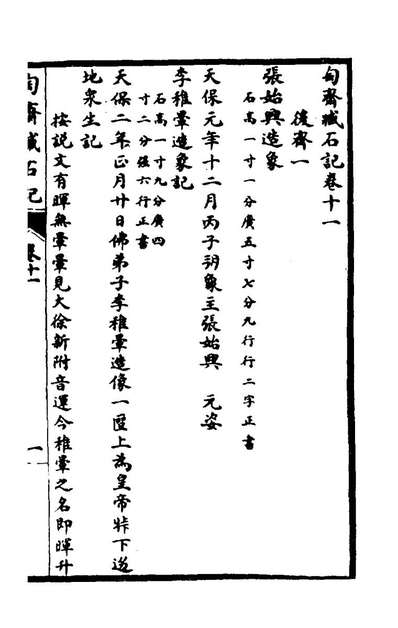 匋齋臧石記卷十一
後齊一
張始興造象
石高一寸一分廣五寸七分九行行二字正書
天保元年十二月丙子朔象主張始興　元姿
李稚暈造象記
石高一寸九分廣四
寸二分强六行正書
天保二年正月廿日佛弟子李稚暈造像一區上為皇帝陛下邊
地眾生記
按說文有暉無暈暈見大徐新附音運今稚暈之名即暉升
匋齋臧石記
卷十一
一